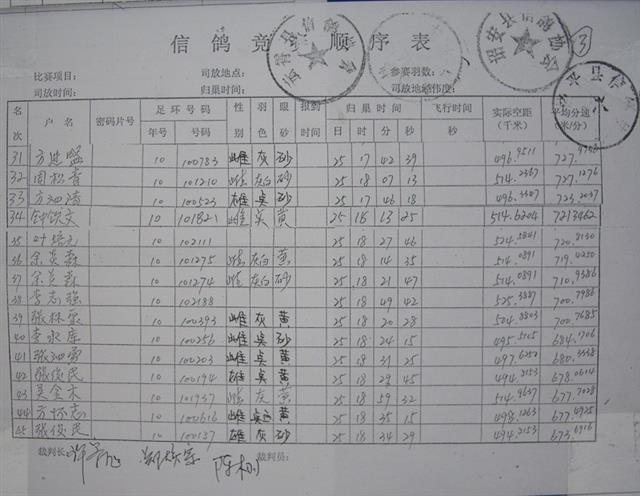 信鸽竞 顺序表
③
比赛项目： 司放地点： 参赛羽数：
司放时间： 归巢时间： 司放地经纬度：
名次 户名 密码片号 足环号码 性别 羽色 眼砂 报到时间 归巢时间 飞行时间 实际空距（千米） 平均分速（米/分）
年号 号码 日 时 分 秒 时 分 秒
31 10 100783 雌 灰 砂 25 17 42 39 496.9511 727.
32 周松青 10 101210 雌 灰白 砂 25 18 07 13 514.2367 727.1276
33 10 100523 雄 吴 砂 25 17 46 18 496.3387 723.2037
34 钟饮文 10 101821 雌 吴 黄 25 18 13 25 514.6204 721.3462
35 叶培元 10 102111 25 18 27 46 524.5841 720.8130
36 余炎森 10 101275 雌 灰白 黄 25 18 14 35 514.0891 719.4250
37 余炎森 10 101274 雌 灰白 砂 25 18 21 47 514.0891 710.9386
38 李志强 10 102188 25 18 49 42 525.3887 700.7986
39 张林 10 100393 雌 灰 黄 25 18 20 28 504.8803 700.7685
40 李永度 10 100256 雌 吴 黄 25 18 24 15 495.5105 684.706
41 10 100203 雌 吴 黄 25 18 31 25 497.6252 680.3338
42 张俊民 10 100194 雄 吴 黄 25 18 29 45 494.2153 678.0614
43 吴金木 10 101937 雌 灰 黄 25 18 59 32 514.9637 677.7028
44 方怀志 10 100616 雌 黄 25 18 35 15 498.1263 677.4925
45 张俊民 10 100187 雄 灰 砂 25 18 34 29 494.2153 673.6916
裁判长： 裁判员：